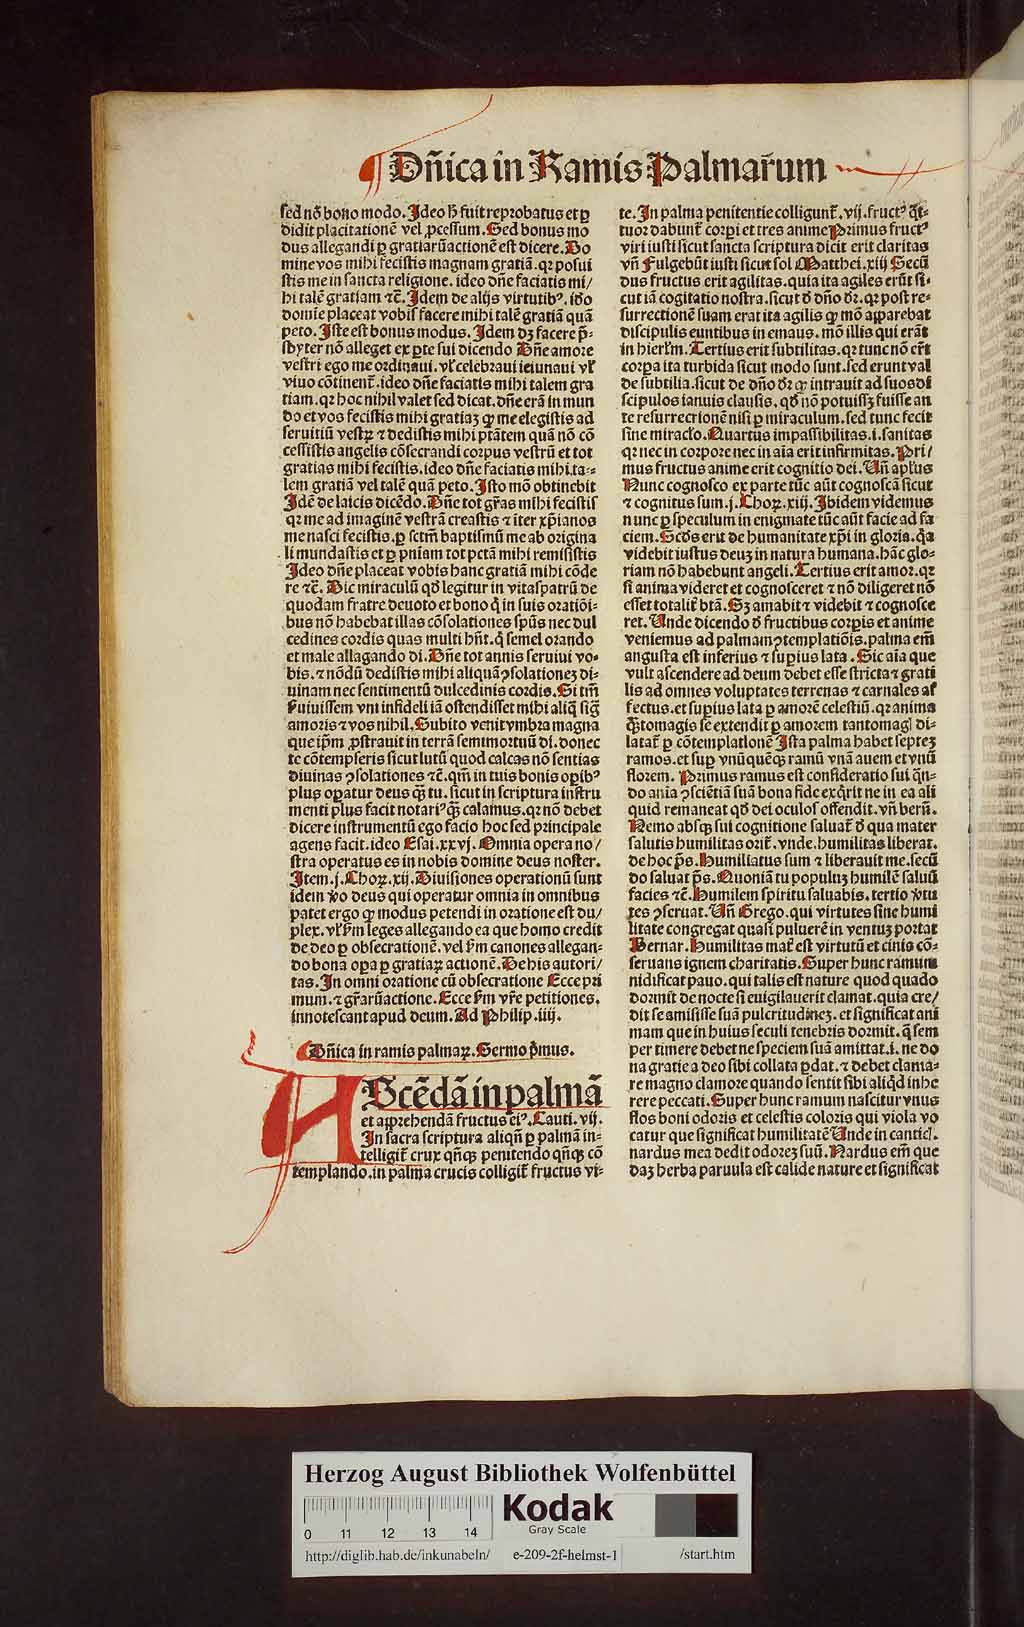 Dn̄ica in Ramis Palmaꝝ̄um
sed nō bono modo. Ideo h̄ fuit reprobatus et ꝑ
didit placitationē vel ꝓcessum. Sed bonus mo
dus allegandi ꝑ gratiarū actionē est dicere. Do
mine vos mihi fecistis magnam gratiā. qꝛ posui
stis me in sancta religione. ideo dn̄e faciatis mi/
hi talē gratiam ⁊c̄. Idem de alijs virtutibꝰ. iđo
domīe placeat vobis facere mihi talē gratiā quā
peto. Iste est bonus modus. Idem dꝫ facere p̄s-
sbyter nō alleget ex ꝑte sui dicendo Dn̄e amore
vestri ego me ordinaui. vł celebraui ieiunaui vł
viuo cōtinent̄. ideo dn̄e faciatis mihi talem gra
tiam. qꝛ hoc nihil valet sed dicat. dn̄e erā in mun
do et vos fecistis mihi gratiaꝫ ꝙ me elegistis ad
seruitiū vestꝝ ⁊ dedistis mihi ptātem quā nō cō
cessistis angelis cōsecrandi corpus vestrū et tot
gratias mihi fecistis. ideo dn̄e faciatis mihi. ta-
lem gratiā vel talē quā peto. Isto mō obtinebit
Idē de laicis dicēdo. Dn̄e tot gr̄as mihi fecistis
qꝛ me ad imaginē vestrā creastis ⁊ iter xp̄ianos
me nasci fecistis. ꝑ sctm̄ baptismū me ab origina
li mundastis et ꝑ pn̄iam tot pctā mihi remisistis
Ideo dn̄e placeat vobis hanc gratiā mihi cōde
re ⁊c̄. Hic miraculū qđ legitur in vitaspatrū de
quodam fratre deuoto et bono q̇ in suis oratiōi-
bus nō habebat illas cōsolationes spūs nec dul
cedines cordis quas multi hn̄t. q̇ semel orando
et male allagando di. Dn̄e tot annis seruiui vo-
bis. ⁊ nōdū dedistis mihi aliquā ꝯsolationeꝫ di-
uinam nec sentimentū dulcedinis cordis. Si tm̄
ẜuiuissem vni infideli iā ostendisset mihi aliq̄ sig̃
amoris ⁊ vos nihil. Subito venit vmbra magna
que ip̄m ꝓstrauit in terrā semimortuū di. donec
te cōtempseris sicut lutū quod calcas nō sentias
diuinas ꝯsolationes ⁊c̄. qm̄ in tuis bonis oꝑibꝰ
plus oꝑatur deus q̄ꝫ tu. sicut in scriptura instru
menti plus facit notariꝰ q̄ꝫ calamus. qꝛ nō debet
dicere instrumentū ego facio hoc sed principale
agens facit. ideo Esai. xxvj. Omnia opera no/
stra operatus es in nobis domine deus noster.
Item. j. Choꝝ. xij. Diuisiones operationū sunt
idem v̾o deus qui operatur omnia in omnibus
patet ergo ꝙ modus petendi in oratione est du/
plex. vł ẜm leges allegando ea que homo credit
de deo ꝑ obsecrationē. vel ẜm canones allegan-
do bona oꝑa ꝑ gratiaꝝ actionē. De his autori/
tas. In omni oratione cū obsecratione Ecce pri
mum. ⁊ gr̄arū actione. Ecce ẜm vr̄e petitiones.
innotescant apud deum. Ad Philip. iiij.
Dn̄ica in ramis palmaꝝ. Sermo p̄mus.
AScēdā in palmā
et apprehendā fructus eiꝰ. Canti. vij.
In sacra scriptura aliqn̄ ꝑ palmā in-
telligit̄ crux qn̄qꝫ penitendo qn̄qꝫ cō
templando. in palma crucis colligit̄ fructus vi-
te. In palma penitentie colligunt̄. vij. fructꝰ q̄t-
tuor dabunt̄ corꝑi et tres anime Primus fructꝰ
viri iusti sicut sancta scriptura dicit erit claritas
vn̄ Fulgebūt iusti sicut sol Matthei. xiij Secū
dus fructus erit agilitas. quia ita agiles erūt si-
cut iā cogitatio nostra. sicut đ dn̄o đꝛ. qꝛ post re-
surrectionē suam erat ita agilis ꝙ mō apparebat
discipulis euntibus in emaus. mō illis qui erāt
in hierłm. Tertius erit subtilitas. qꝛ tunc nō er̄t
corꝑa ita turbida sicut modo sunt. sed erunt val
de subtilia. sicut de dn̄o đꝛ ꝙ intrauit ad suos di
scipulos ianuis clausis. qđ nō potuissꝫ fuisse an
te resurrectionē nisi ꝑ miraculum. sed tunc fecit
sine miraclo. Quartus impassibilitas. i. sanitas
qꝛ nec in corpore nec in aīa erit infirmitas. Pri/
mus fructus anime erit cognitio dei. Un̄ apłus
Nunc cognosco ex parte tūc aūt cognoscā sicut
⁊ cognitus sum. j. Choꝝ. xiij. Ibidem videmus
nunc ꝑ speculum in enigmate tūc aūt facie ad fa
ciem. Scđs erit de humanitate xp̄i in gloria. q̇a
videbit iustus deuꝫ in natura humana. hāc glo-
riam nō habebunt angeli. Tertius erit amor. qꝛ
si anima videret et cognosceret ⁊ nō diligeret nō
esset totalit̄ btā. Sꝫ amabit ⁊ videbit ⁊ cognosce
ret. Unde dicendo đ fructibus corꝑis et anime
veniemus ad palmam ꝯtemplatiōis. palma em̄
angusta est inferius ⁊ suꝑius lata. Sic aīa que
vult ascendere ad deum debet esse stricta ⁊ grati
lis ad omnes voluptates terrenas ⁊ carnales af
fectus. et suꝑius lata ꝑ amorē celestiū. qꝛ anima
q̄stomagis se extendit ꝑ amorem tantomagꝭ di-
latat̄ ꝑ cōtemplationē Ista palma habet septeꝫ
ramos. et suꝑ vnūquēqꝫ ramū vnā auem et vnū
florem. Primus ramus est consideratio sui qn̄-
do aīa ꝯsciētiā suā bona fide exq̇rit ne in ea ali
quid remaneat qđ dei oculos offendit. vn̄ bern̄.
Nemo absqꝫ sui cognitione saluat̄ đ qua mater
salutis humilitas orit̄. vnde. humilitas liberat.
de hoc p̄s. Humiliatus sum ⁊ liberauit me. secū
do saluat p̄s. Quoniā tu populuꝫ humilē saluū
facies ⁊c̄. Humilem spiritu saluabis. tertio v̾tu
tes ꝯseruat. Un̄ Grego. qui virtutes sine humi
litate congregat quasi puluerē in ventuꝫ portat
Bernar. Humilitas mat̄ est virtutū et cinis cō-
seruans ignem charitatis. Super hunc ramum
nidificat pauo. qui talis est nature quod quado
dormit de nocte si euigilauerit clamat. quia cre/
dit se amisisse suā pulcritudineꝫ. et significat ani
mam que in huius seculi tenebris dormit. q̄ sem
per timere debet ne speciem suā amittat. i. ne do
na gratie a deo sibi collata ꝑdat. ⁊ debet clama-
re magno clamore quando sentit sibi aliq̇d inhe
rere peccati. Super hunc ramum nascitur vnus
flos boni odoris et celestis coloris qui viola vo
catur que significat humilitatē Unde in canticꝭ.
nardus mea dedit odoreꝫ suū. Nardus em̄ que
daꝫ herba paruula est calide nature et significat
Herzog August Bibliothek Wolfenbüttel
0 11 12 13 14
Kodak
Gray Scale
http://diglib.hab.de/inkunabeln/ e-209-2f-helmst-1 /start.htm